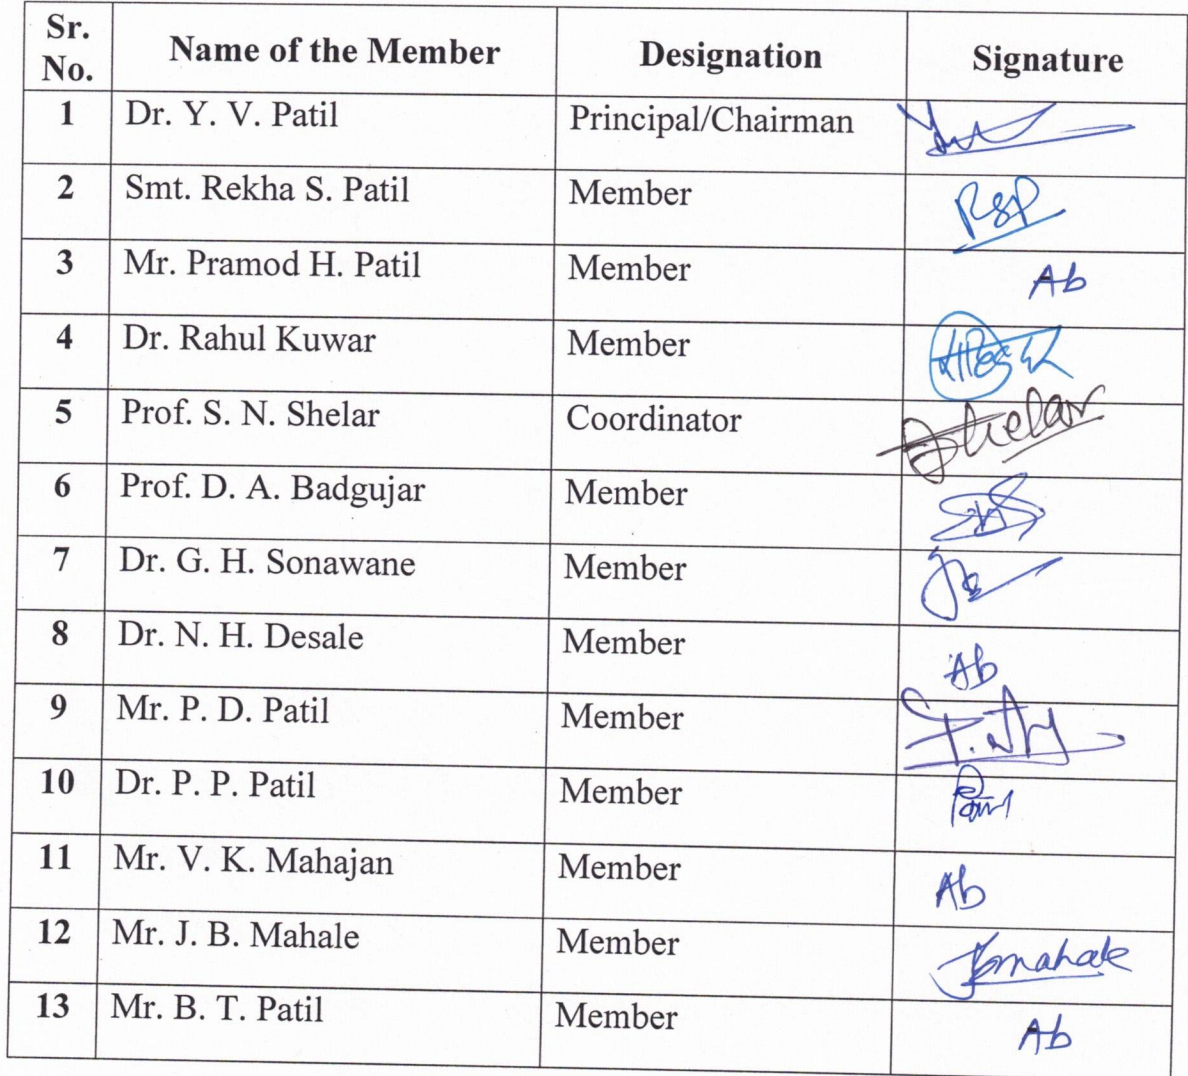 Sr. No. Name of the Member Designation Signature
1 Dr. Y. V. Patil Principal/Chairman
2 Smt. Rekha S. Patil Member RSP
3 Mr. Pramod H. Patil Member Ab
4 Dr. Rahul Kuwar Member
5 Prof. S. N. Shelar Coordinator Shelar
6 Prof. D. A. Badgujar Member
7 Dr. G. H. Sonawane Member
8 Dr. N. H. Desale Member Ab
9 Mr. P. D. Patil Member
10 Dr. P. P. Patil Member
11 Mr. V. K. Mahajan Member Ab
12 Mr. J. B. Mahale Member Jbmahale
13 Mr. B. T. Patil Member Ab